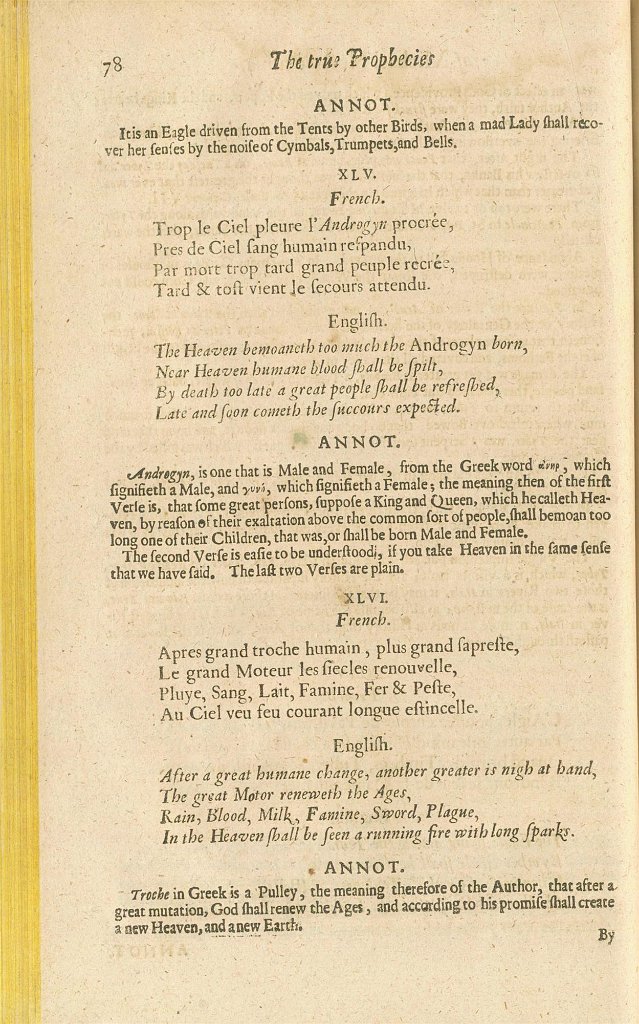 78
The true Prophecies
ANNOT.
It is an Eagle driven from the Tents by other Birds, when a mad Lady ſhall reco-
ver her ſenſes by the noiſe of Cymbals, Trumpets, and Bells.
XLV.
French.
Trop le Ciel pleure l'Androgyn procrée,
Pres de Ciel ſang humain reſpandu,
Par mort trop tard grand peuple recrée,
Tard & toſt vient le ſecours attendu.
Engliſh.
The Heaven bemoaneth too much the Androgyn born,
Near Heaven humane blood ſhall be ſpilt,
By death too late a great people ſhall be refreſhed,
Late and ſoon cometh the ſuccours expected.
ANNOT.
Androgyn, is one that is Male and Female, from the Greek word ἀνηρ, which
ſignifieth a Male, and γυνὴ, which ſignifieth a Female; the meaning then of the firſt
Verſe is, that ſome great perſons, ſuppoſe a King and Queen, which he calleth Hea-
ven, by reaſon of their exaltation above the common ſort of people, ſhall bemoan too
long one of their Children, that was, or ſhall be born Male and Female.
The ſecond Verſe is eaſie to be underſtood, if you take Heaven in the ſame ſenſe
that we have ſaid. The laſt two Verſes are plain.
XLVI.
French.
Apres grand troche humain, plus grand ſapreſte,
Le grand Moteur les ſiecles renouvelle,
Pluye, Sang, Lait, Famine, Fer & Peſte,
Au Ciel veu feu courant longue eſtincelle.
Engliſh.
After a great humane change, another greater is nigh at hand,
The great Motor reneweth the Ages,
Rain, Blood, Milk, Famine, Sword, Plague,
In the Heaven ſhall be ſeen a running fire with long ſparks.
ANNOT.
Troche in Greek is a Pulley, the meaning therefore of the Author, that after a
great mutation, God ſhall renew the Ages, and according to his promiſe ſhall create
a new Heaven, and a new Earth.
By